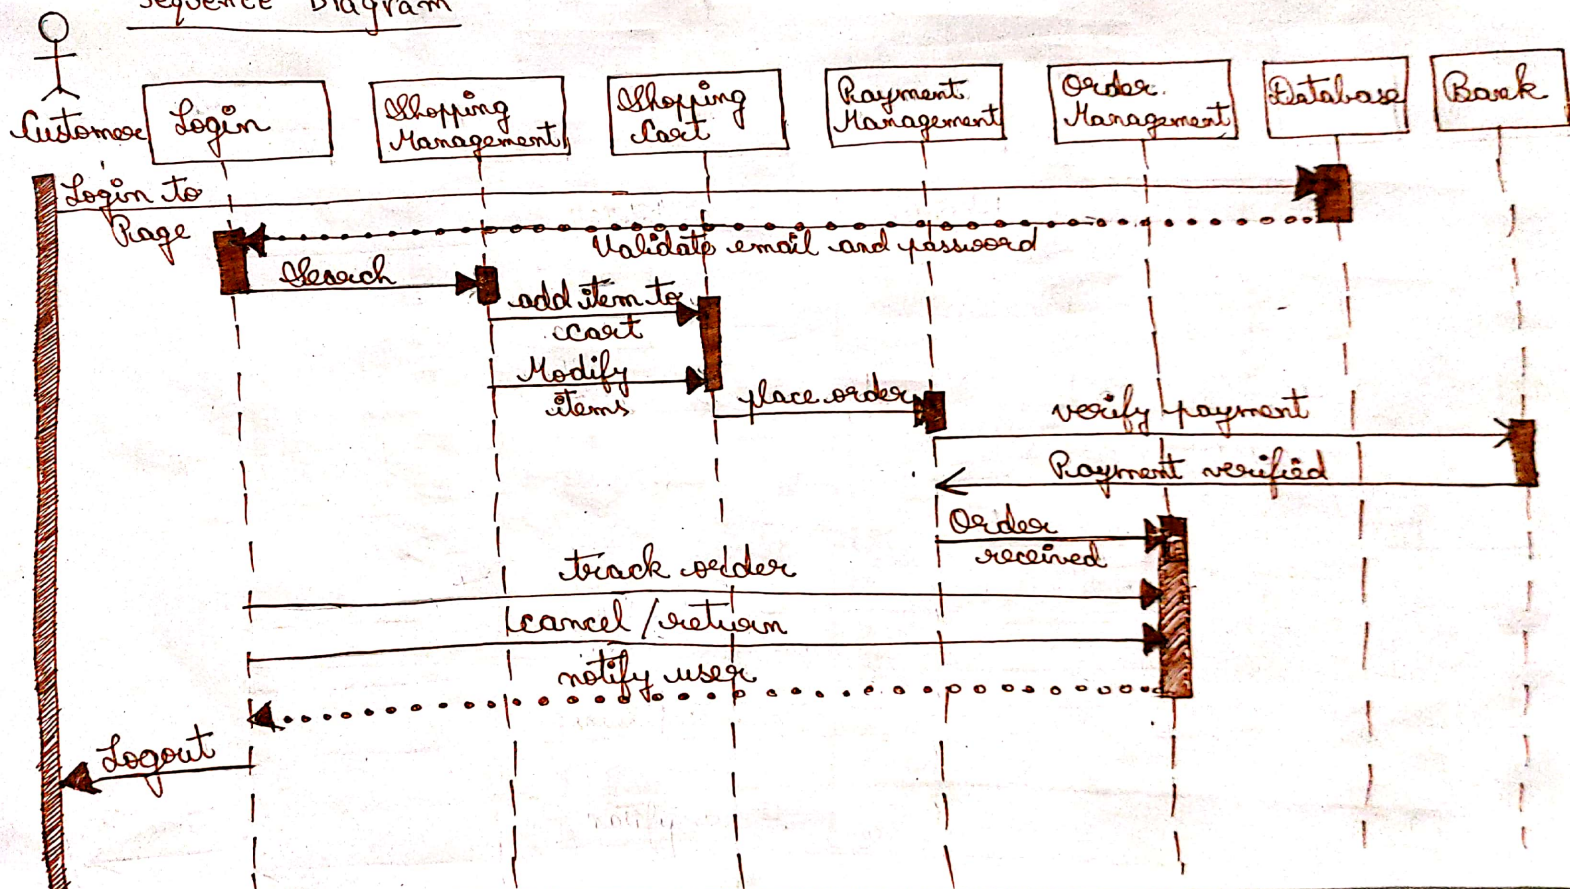 Sequence Diagram
Customer
Login
Shopping
Management
Shopping
Cart
Payment
Management
Order
Management
Database
Bank
Login to
Page
Validate email and password
Search
add item to
cart
Modify
items
place order
verify payment
Payment verified
Order
received
track odder
cancel/return
notify user
Logout